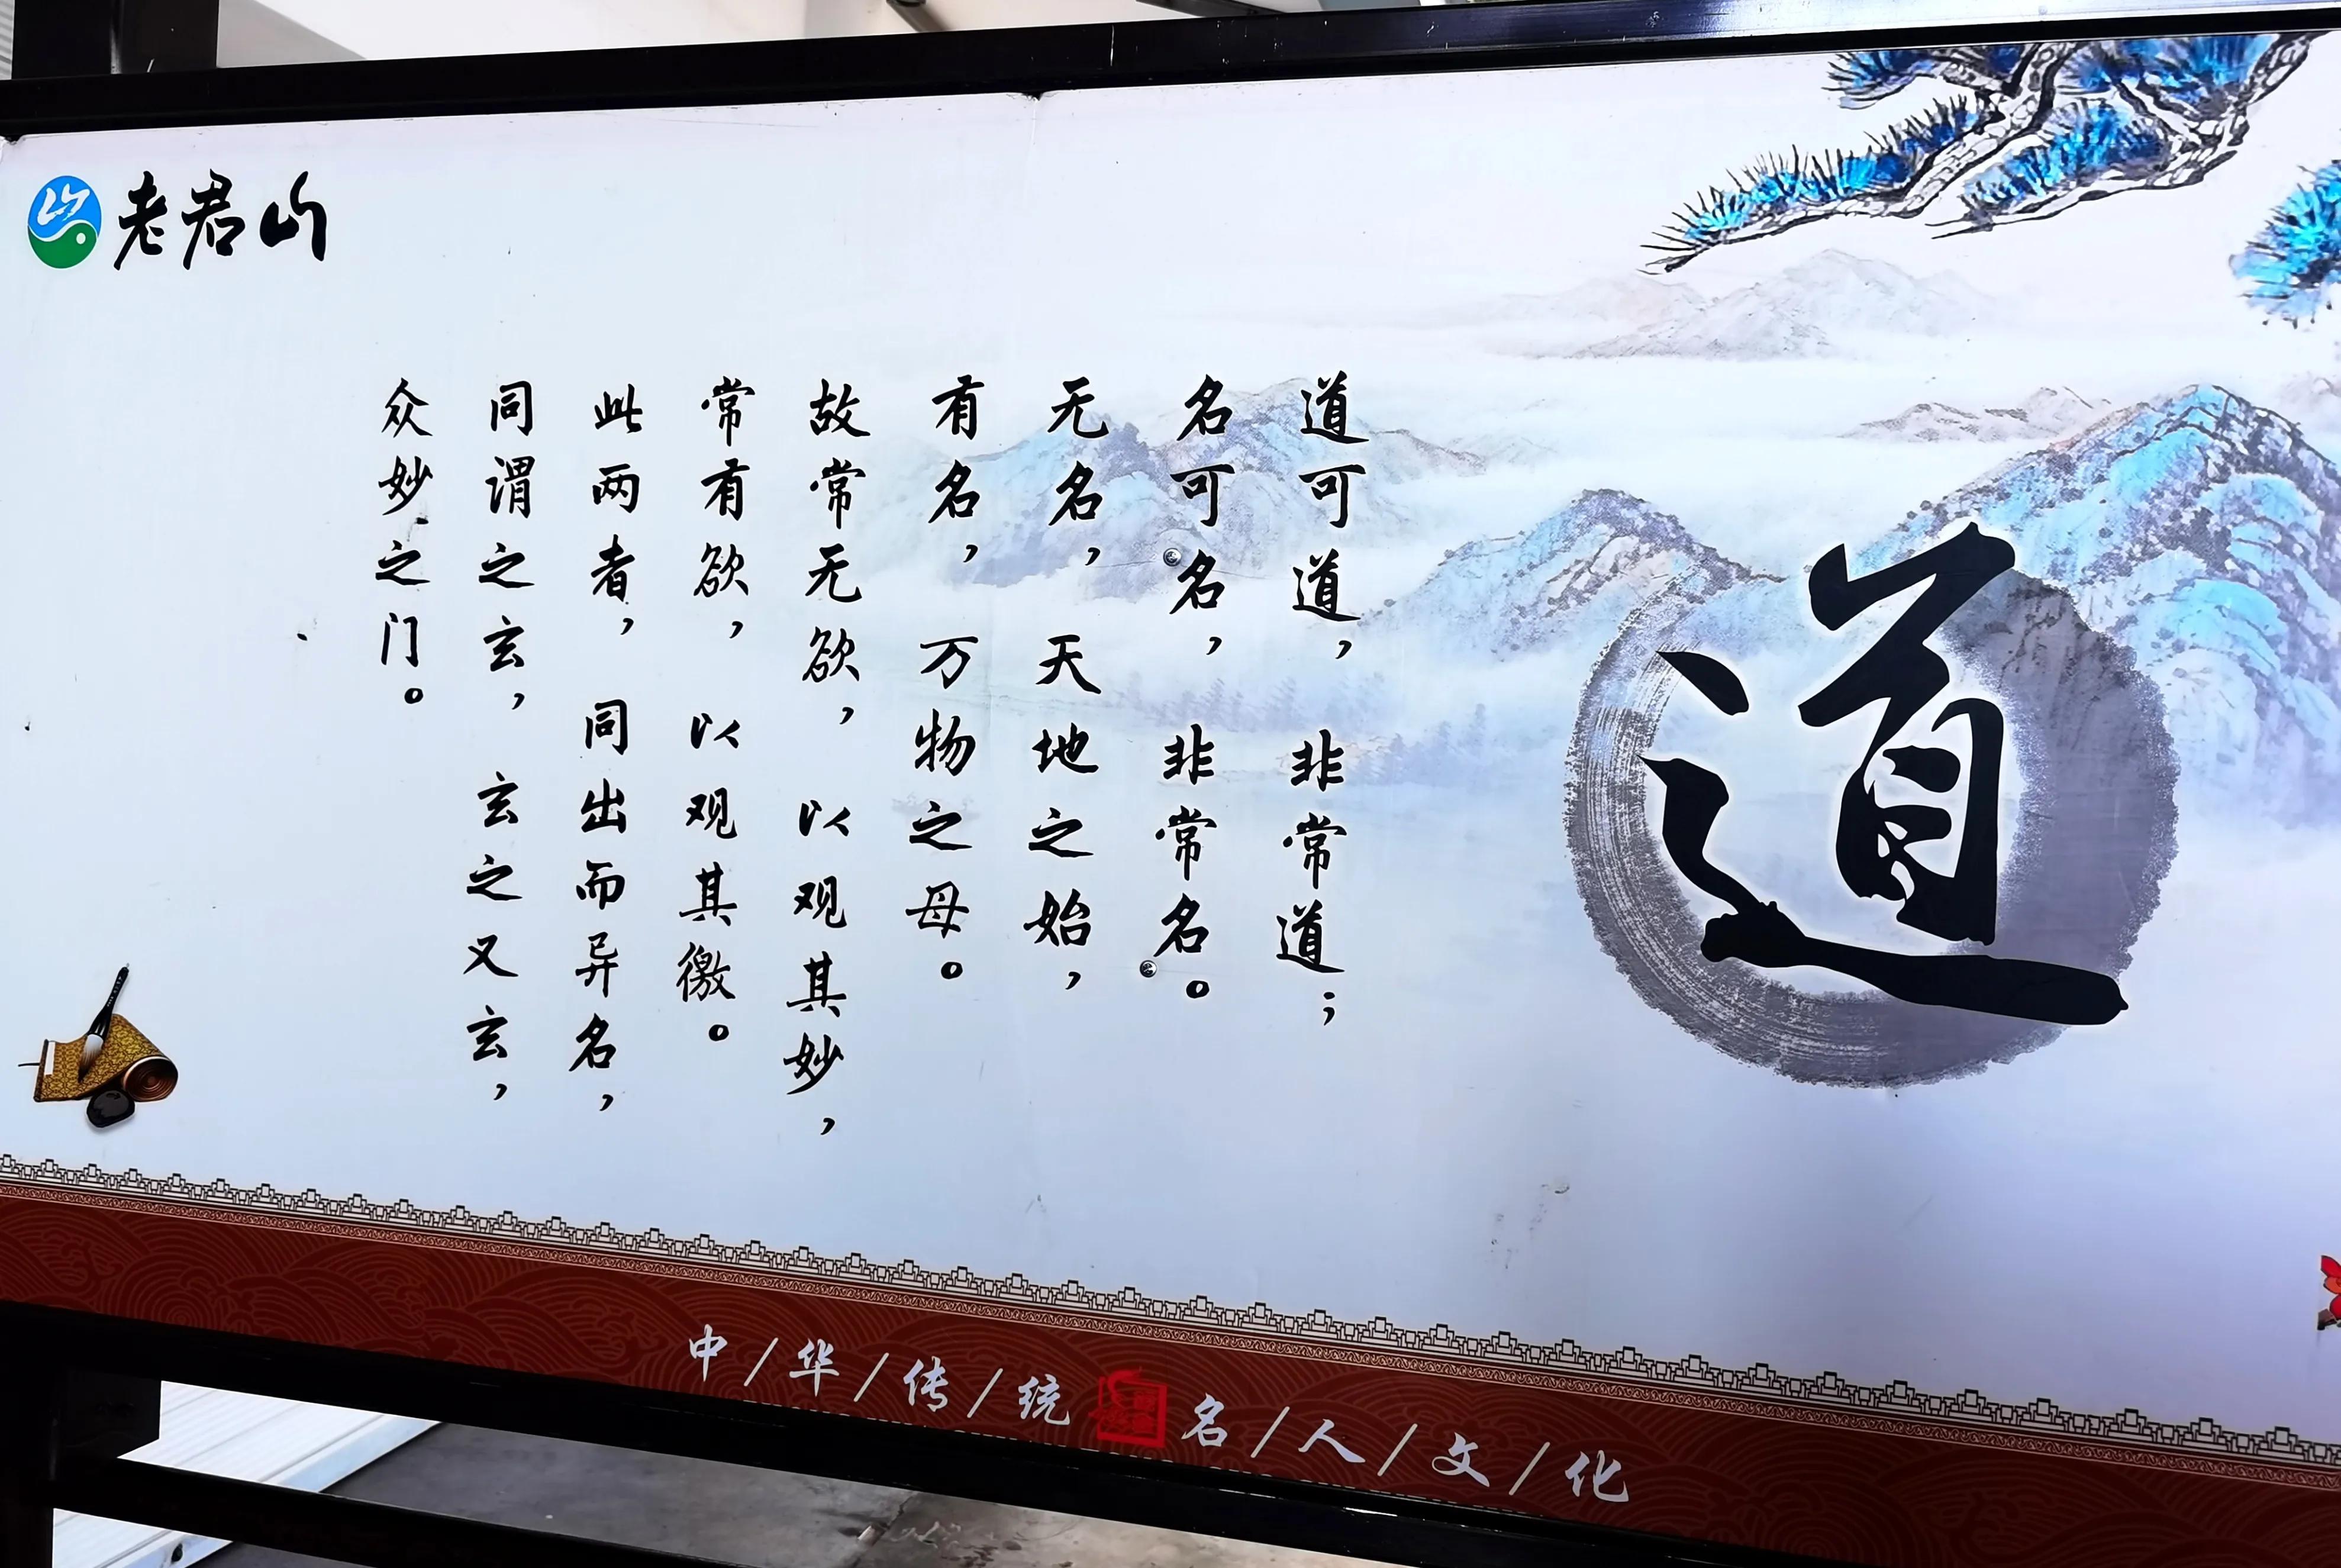 老君山
道
道可道，非常道；
名可名，非常名。
无名，天地之始，
有名，万物之母。
故常无欲，以观其妙，
常有欲，以观其徼。
此两者，同出而异名，
同谓之玄，玄之又玄，
众妙之门。
中/华/传/统
名/人/文/化